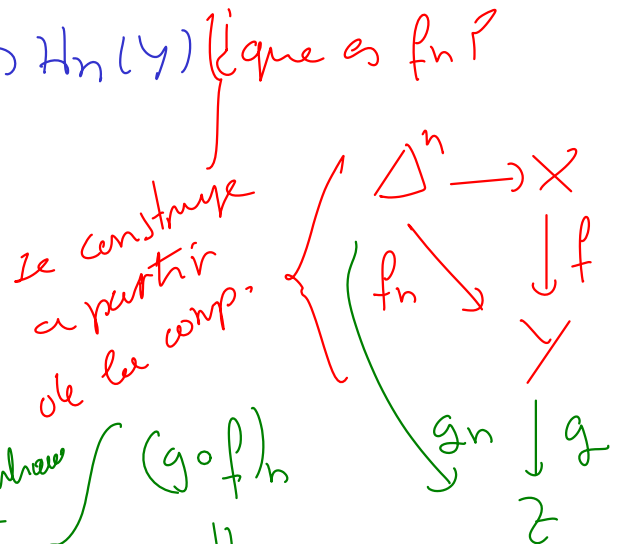 H_n(Y) ¿que es f_n?
Δ^n → X
se construye
a partir
de la comp.
f_n
f
Y
g_n
g
(g∘f)_n
Z